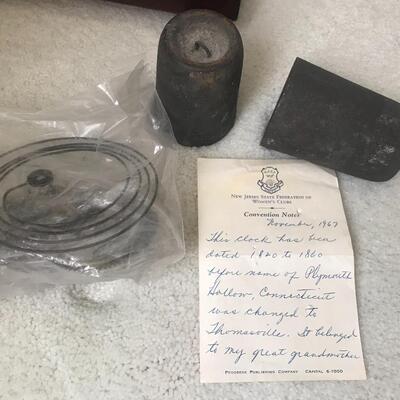 NEW JERSEY STATE FEDERATION OF
WOMEN'S CLUBS
Convention Notes
November, 1967
This clock has been
dated 1820 to 1860
before name of Plymouth
Hollow, Connecticut
was changed to
Thomasville. It belonged
to my great grandmother
PROGRESS PUBLISHING COMPANY CAPITAL 6-1000